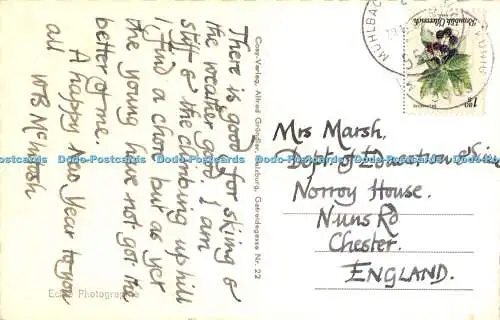 There is good for skiing &
the weather good. I am
stiff & the climbing up hill
I find a chore but as yet
the young have not got the
better of me.
A happy New Year to you
all
WB McIntosh
Echte Photographie
Cosy-Verlag, Alfred Gründler, Salzburg, Getreidegasse Nr. 22
MÜHLBACH
Republik Österreich
1.80
S
Mrs Marsh.
Dept. of Education
Norroy House.
Nuns Rd
Chester.
ENGLAND.
Dodo-Postcards Dodo-Postcards Dodo-Postcards Dodo-Postcards Dodo-Postcards